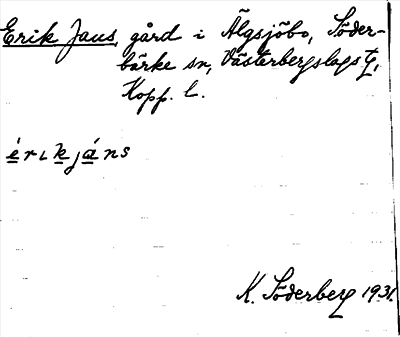 Erik Jans, gård i Älgsjöbo, Söder-
bärke sn, Västerbergslags
Kopp. l.
érikjáns
K. Söderberg 1931.